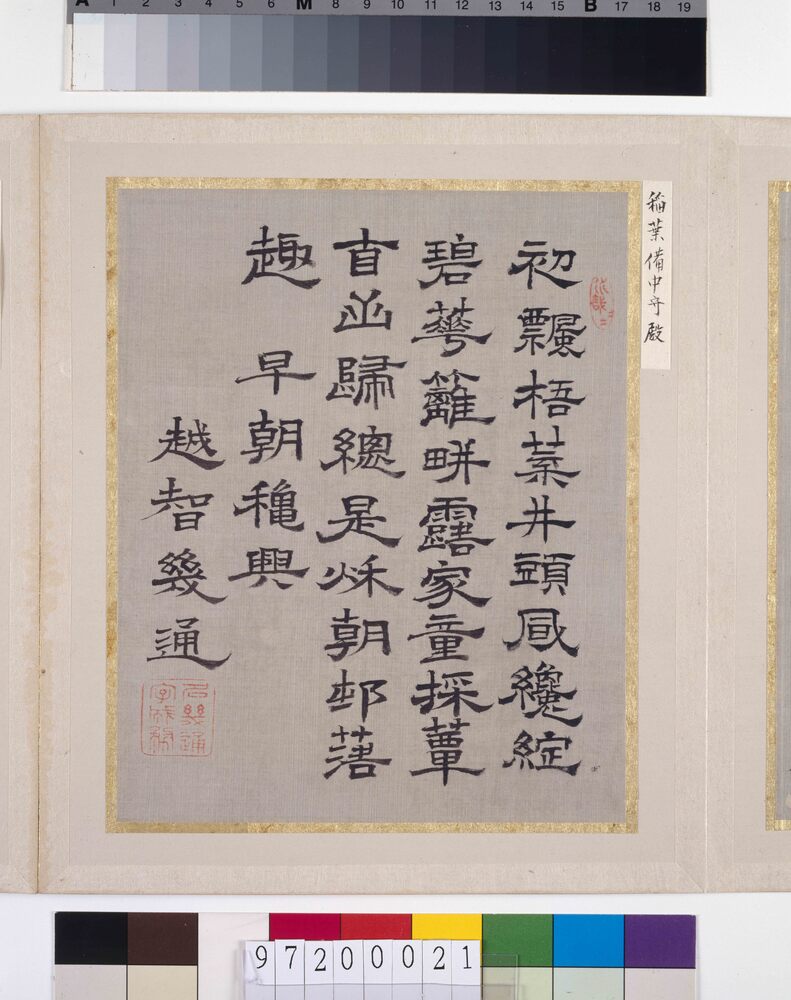 A 1 2 3 4 5 6 M 8 9 10 11 12 13 14 15 B 17 18 19
稲葉備中守殿
初飄梧葉井頭凬纔綻
碧華籬畔露家童採蕈
自山歸總是秋朝邨落
趣　早朝穐興
越智幾通
97200021